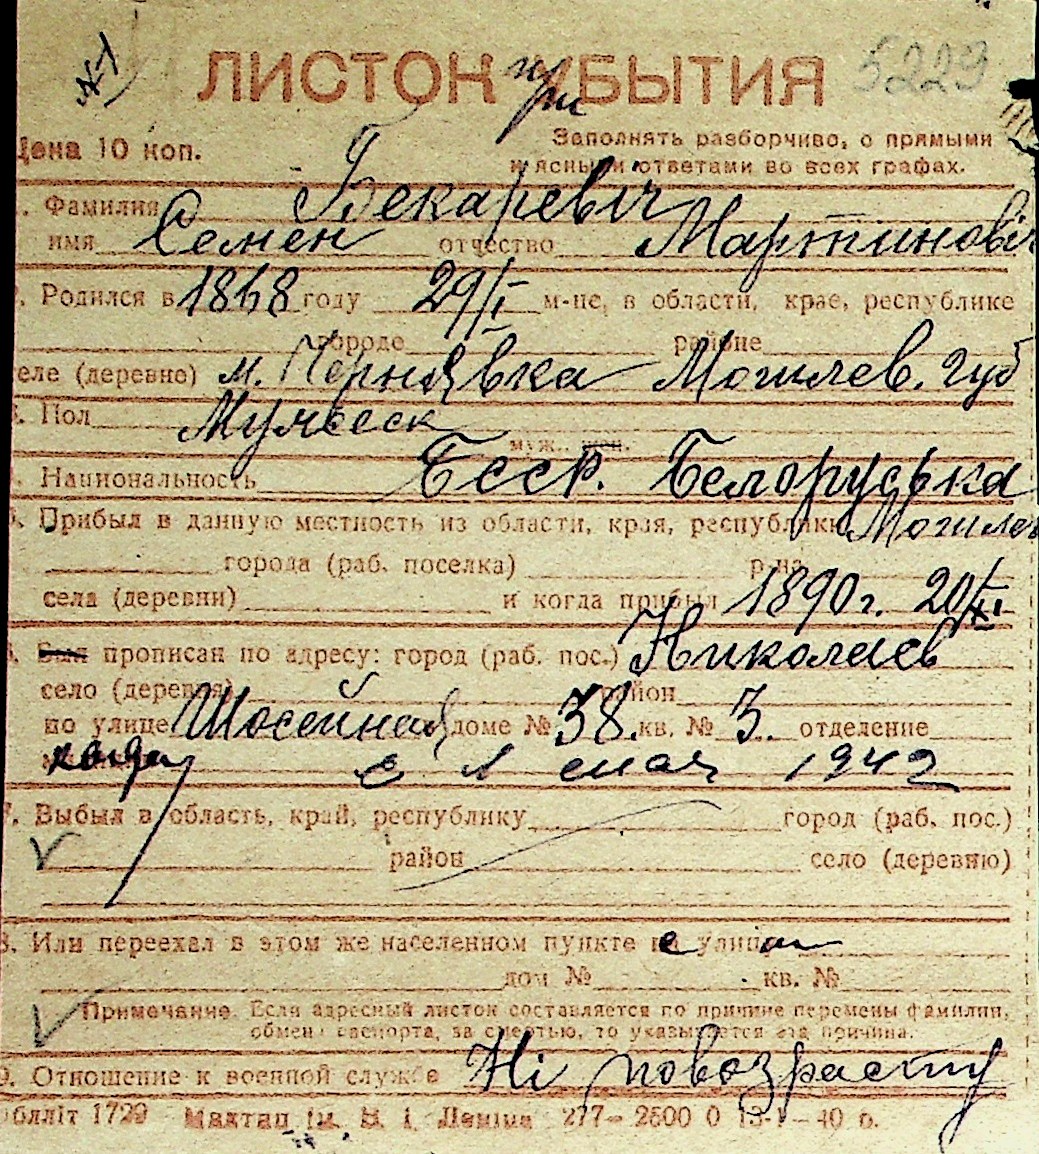 №1
ЛИСТОК при УБЫТИЯ 5229
Цена 10 коп.
Заполнять разборчиво, с прямыми
и ясными ответами во всех графах.
1. Фамилия Бекаревіч
имя Семен отчество Мартиновіч
2. Родился в 1868 году 29/I м-це, в области, крае, республике
городе районе
селе (деревне) м. Чернявка Могилев. губ
3. Пол Мужсеск
муж., жен.
4. Национальность БССР. Белоруська
5. Прибыл в данную местность из области, края, республики Могилев
города (раб. поселка) р-на
села (деревни) и когда прибыл 1890 г. 20/XI
6. Был прописан по адресу: город (раб. пос.) Николаев
село (деревня) район
по улице Шосейная доме № 38. кв. № 3. отделение
когда с 1 мая 1942
7. Выбыл в область, край, республику город (раб. пос.)
район село (деревню)
8. Или переехал в этом же населенном пункте с улицы
дом № кв. №
Примечание. Если адресный листок составляется по причине перемены фамилии,
обмена паспорта, за смертью, то указывается эта причина.
9. Отношение к военной службе Ні повозрасту
Облліт 1729 Махтац ім. В. І. Леніна 277—2500 0 13-I—40 р.